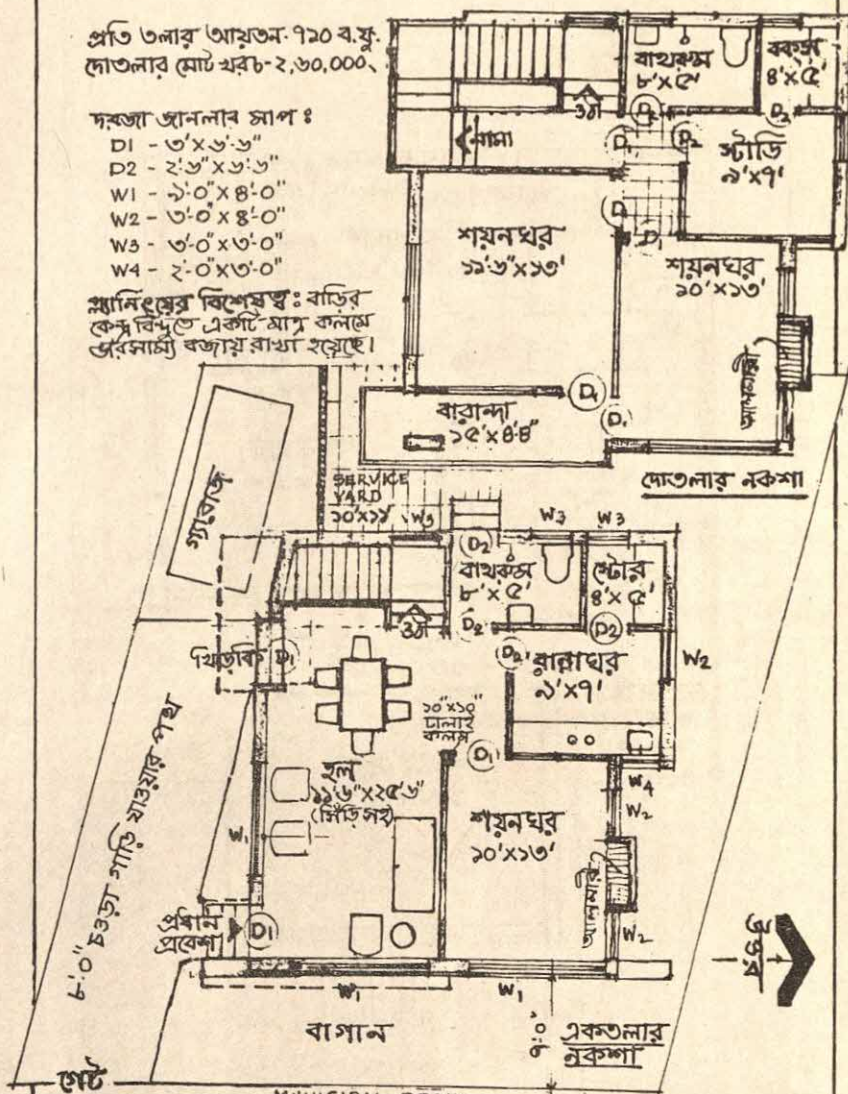 প্রতি তলার আয়তন- ৭২০ ব.ফু.
দোতলার মোট খরচ- ২,৬০,০০০,
দরজা জানলার মাপ :
D1 - ৩'×৬'-৬"
D2 - ২'-৬"×৬'-৬"
W1 - ৯'-০"×৪'-০"
W2 - ৩'-০"×৪'-০"
W3 - ৩'-০"×৩'-০"
W4 - ২'-০"×৩'-০"
প্ল্যানিংয়ের বিশেষত্ব : বাড়ির
কেন্দ্রবিন্দুতে একটি মাত্র কলমে
ভারসাম্য বজায় রাখা হয়েছে।
বাথরুম
৮'×৫'
বক্সরুম
৪'×৫'
ওঠা
নামা
D2
D2
D1
D2
স্টাডি
৯'×৭'
D1
D1
শয়নঘর
১১'-৬"×১৩'
শয়নঘর
১০'×১৩'
আলমারী
D1
D1
বারান্দা
১৫'×৪'-৪"
দোতলার নকশা
গ্যারাজ
SERVICE
YARD
১০'×১১'
W3
D2
W3
W3
বাথরুম
৮'×৫'
স্টোর
৪'×৫'
ওঠা
D2
D2
খিড়কি D1
D2
রান্নাঘর
৯'×৭'
W2
১০"×১০"
ঢালাই
কলম
D1
হল
১১'-৬"×২৫'-৬"
(সিঁড়ি সহ)
W4
W2
শয়নঘর
১০'×১৩'
আলমারী
W1
৭'-০" চওড়া গাড়ি যাওয়ার পথ
প্রধান
প্রবেশ
D1
W2
উত্তর
W1
W1
বাগান
৭'-০"
একতলার
নকশা
গেট
MUNICIPAL ROAD